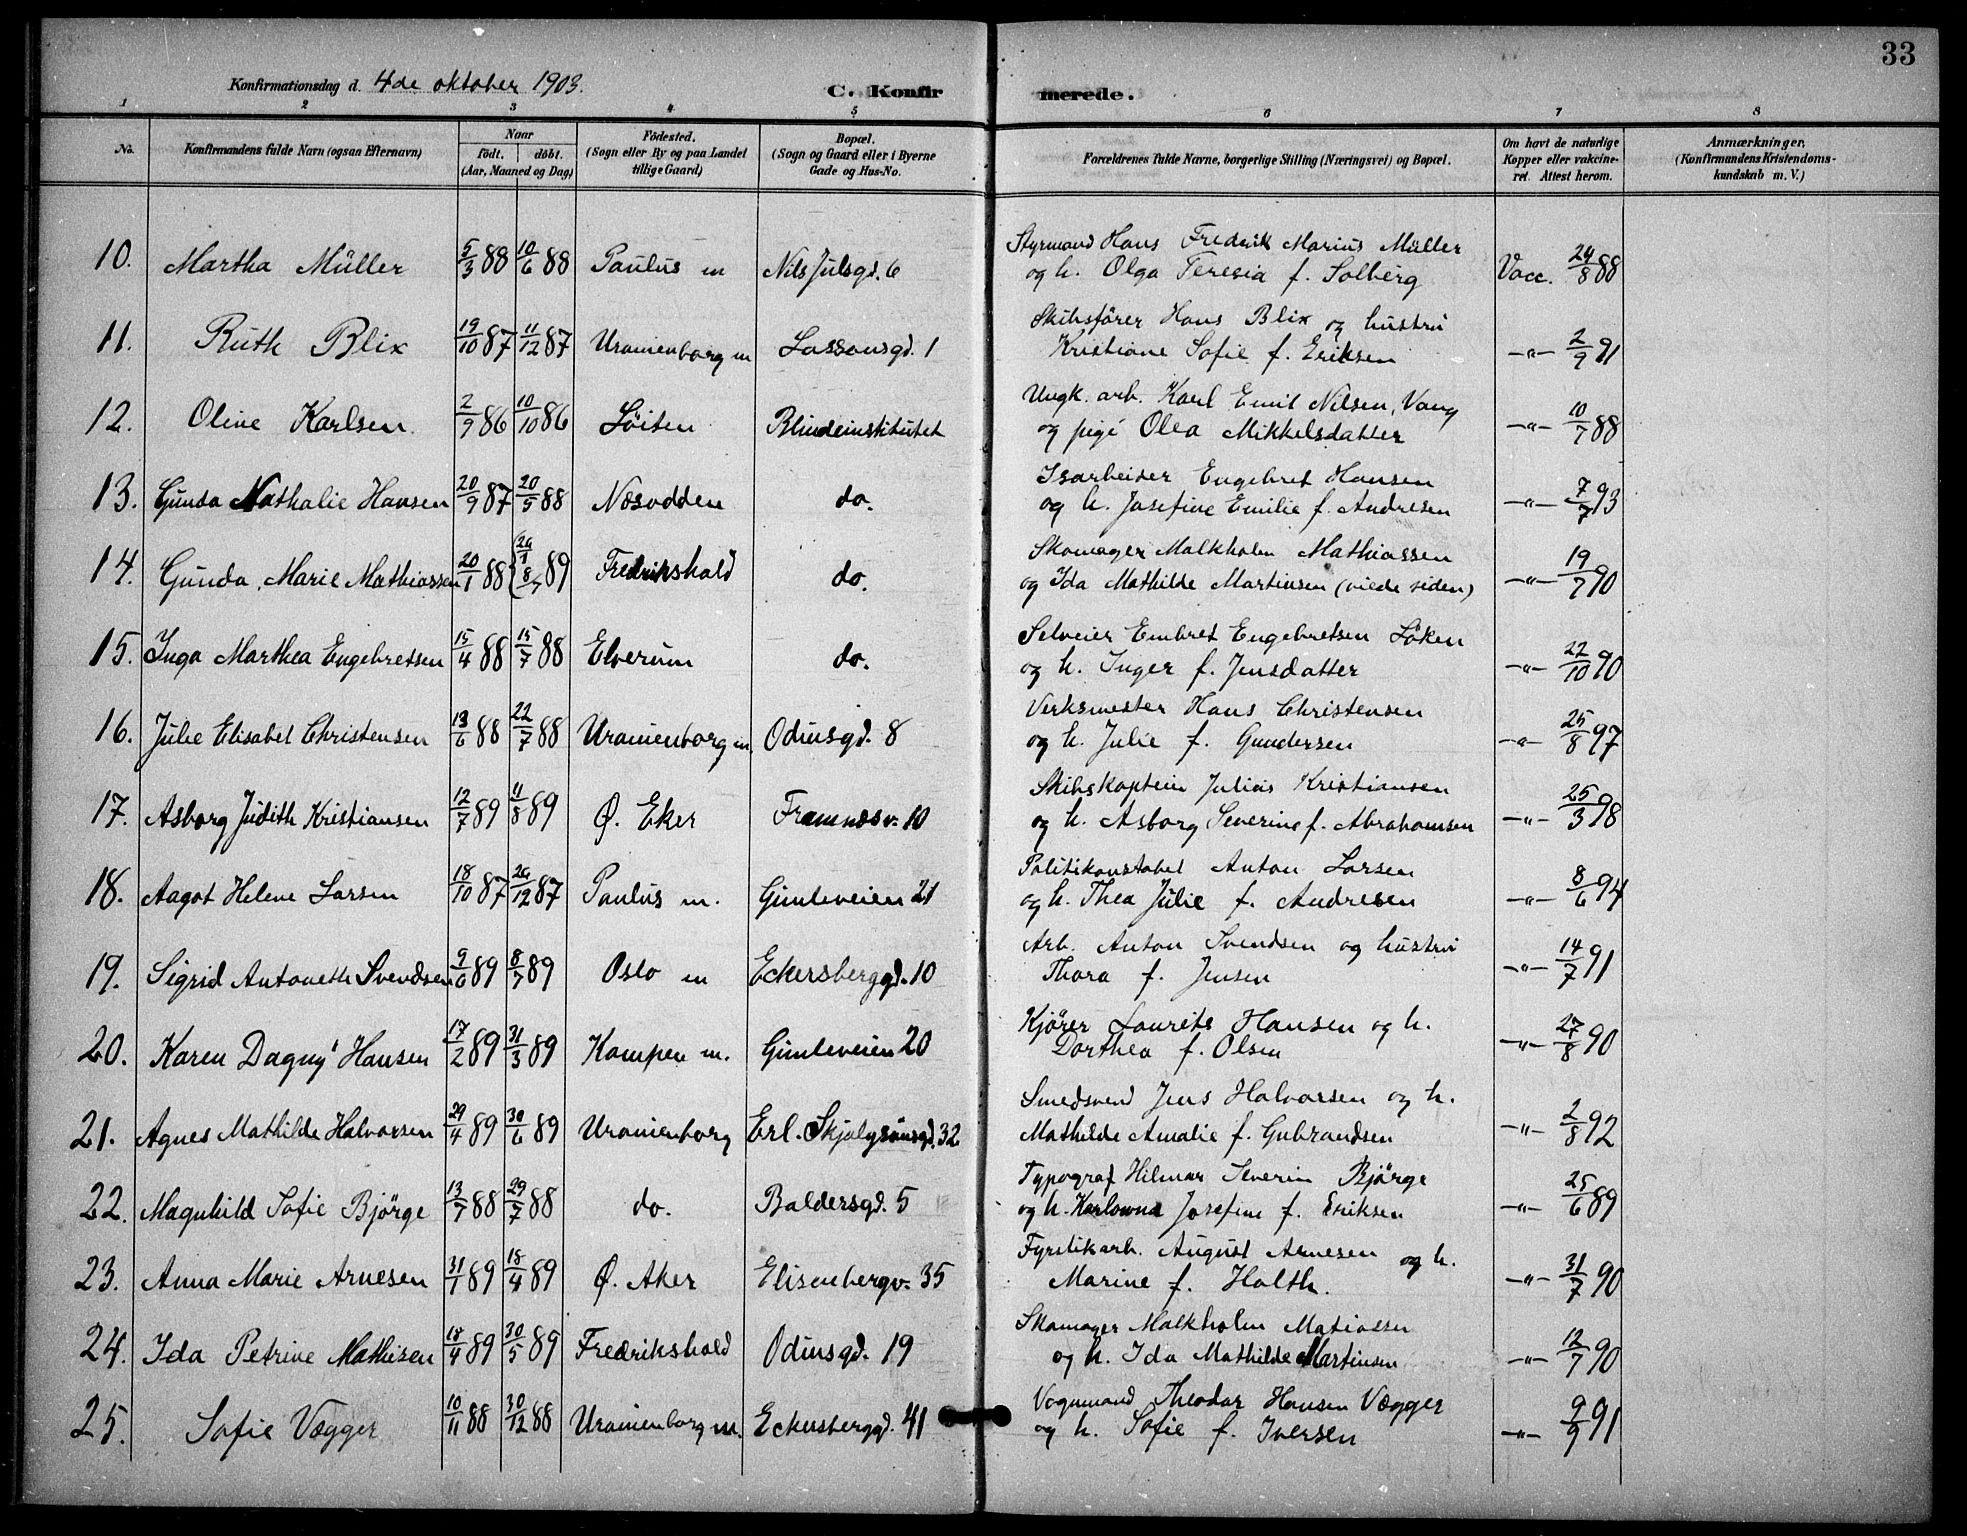 33
Konfirmationsdag d. 4de oktober 1903. C. Konfirmerede.
1 2 3 4 5 6 7 8
No. Konfirmandens fulde Navn (ogsaa Efternavn) Naar født. døbt. (Aar, Maaned og Dag) Fødested. (Sogn eller By og paa Landet tillige Gaard) Bopæl. (Sogn og Gaard eller i Byerne Gade og Hus-No. Forældrenes fulde Navne, borgerlige Stilling (Næringsvei) og Bopæl. Om havt de naturlige Kopper eller vakcineret. Attest herom. Anmærkninger, (Konfirmandens Kristendomskundskab m. V.)
10. Martha Müller 5/3 88 10/6 88 Paulus m Nils Julsgd. 6 Styrmand Hans Fredrik Marius Müller
og h. Olga Teresia f. Solberg Vacc. 24/8 88
11. Ruth Blix 19/10 87 11/12 87 Uranienborg m Lassonsgd. 1 Skibsfører Hans Blix og hustru
Kristiane Sofie f. Eriksen -"- 2/9 91
12. Oline Karlsen 2/9 86 10/10 86 Löiten Blindeinstitutet Ungk. arb. Karl Emil Nilsen, Vang
og pige Olea Mikkelsdatter -"- 10/7 88
13. Gunda Nathalie Hansen 20/9 87 20/5 88 Næsodden do. Isarbeider Engebret Hansen
og h. Josefine Emilie f. Andresen -"- 7/7 93
14. Gunda Marie Mathiassen 20/1 88 { 8/7 89 Fredrikshald do. Skomager Malkholm Mathiassen
og Ida Mathilde Martinsen (viede siden) -"- 19/7 90
15. Inga Marthea Engebretsen 15/4 88 15/7 88 Elverum do. Selveier Embret Engebretsen Löken
og h. Inger f. Jensdatter -"- 22/10 90
16. Julie Elisabet Christensen 13/6 88 22/7 88 Uranienborg m. Odinsgd. 8 Verksmester Hans Christensen
og h. Julie f. Gundersen -"- 25/8 97
17. Asborg Judith Kristiansen 12/7 89 11/8 89 Ø. Eker Framnæsv. 10 Skibskaptein Julius Kristiansen
og h. Asborg Severine f. Abrahamsen -"- 25/3 98
18. Aagot Helene Larsen 18/10 87 26/12 87 Paulus m. Gimleveien 21 Politikonstabel Anton Larsen
og h. Thea Julie f. Andresen -"- 8/6 94
19. Sigrid Antonette Svendsen 9/6 89 8/7 89 Oslo m Eckersberggd. 10 Arb. Anton Svendsen og hustru
Thora f. Jensen -"- 14/7 91
20. Karen Dagny Hansen 17/2 89 31/3 89 Kampen m. Gimleveien 20 Kjører Laurits Hansen og h.
Dorthea f. Olsen -"- 27/8 90
21. Agnes Mathilde Halvorsen 29/4 89 30/6 89 Uranienborg Erl. Skjalgsønsgd. 32 Smedsvend Jens Halvorsen og h.
Mathilde Amalie f. Gubrandsen -"- 2/8 92
22. Magnhild Sofie Bjørge 13/7 88 29/7 88 do. Baldersgd. 5 Typograf Hilmar Severin Bjørge
og h. Karlowna Josefine f. Eriksen -"- 25/6 89
23. Anna Marie Arnesen 31/1 89 18/4 89 Ø. Aker Elisenbergv. 35 Fyrstikarb. August Arnesen og h.
Marine f. Holth. -"- 31/7 90
24. Ida Petrine Mathisen 18/4 89 30/5 89 Fredrikshald Odinsgd. 19 Skomager Malkholm Matiassen
og h. Ida Mathilde Martinsen -"- 12/7 90
25. Sofie Vægger 10/11 88 30/12 88 Uranienborg m. Eckersberggd. 41 Vognmand Theodor Hansen Vægger
og h. Sofie f. Iversen -"- 9/9 91